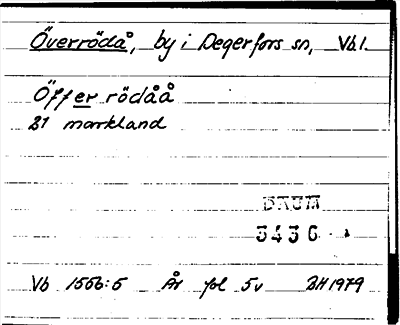 Överrödå, by i Degerfors sn, Vbl.
Öffer rödåå
21 markland
DAUM
3436
Vb 1556:5 År fol 5v BH 1979